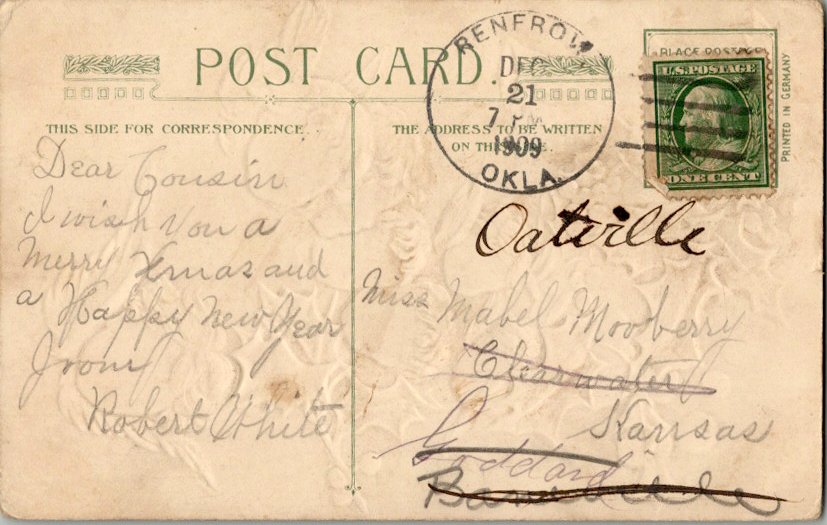 POST CARD
THIS SIDE FOR CORRESPONDENCE.
THE ADDRESS TO BE WRITTEN
ON THIS SIDE.
RENFROW
DEC
21
7 PM
1909
OKLA.
PLACE POSTAGE
U.S. POSTAGE
ONE CENT
PRINTED IN GERMANY
Dear Cousin
I wish you a
Merry Xmas and
a Happy New Year
from
Robert White
Oatville
Miss Mabel Mowberry
Clearwater
Kansas
Goddard